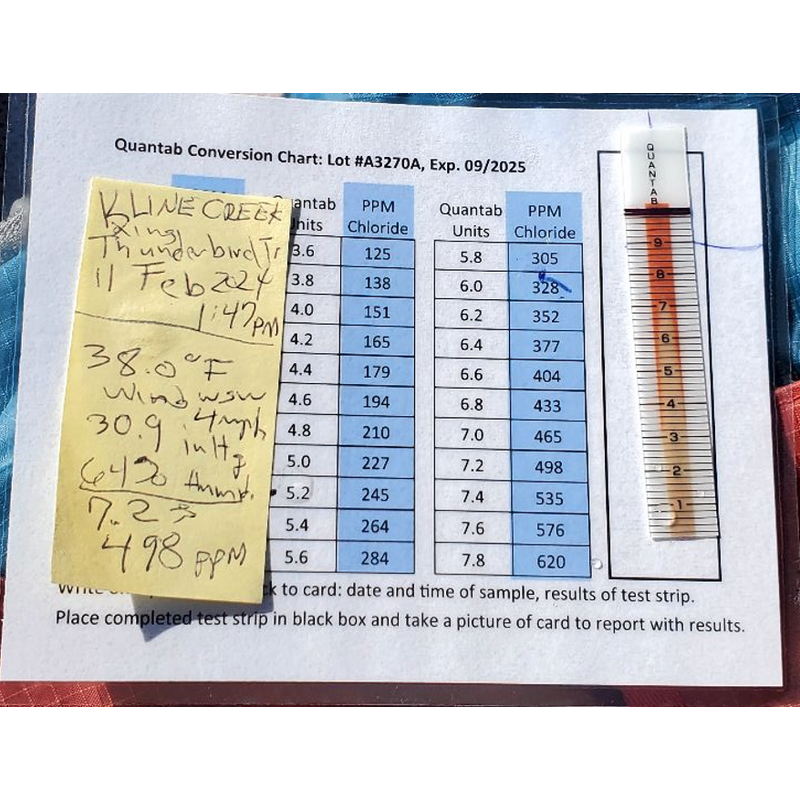 Quantab Conversion Chart: Lot #A3270A, Exp. 09/2025
KLINE CREEK
Xing
Thunderbird Tr
11 Feb 2024
1:47 PM
38.0°F
Wind WSW
.4mph
30.9 inHg
64% Humid.
7.2
498 PPM
uantab PPM
Units Chloride
3.6 125
3.8 138
4.0 151
4.2 165
4.4 179
4.6 194
4.8 210
5.0 227
5.2 245
5.4 264
5.6 284
Quantab PPM
Units Chloride
5.8 305
6.0 328
6.2 352
6.4 377
6.6 404
6.8 433
7.0 465
7.2 498
7.4 535
7.6 576
7.8 620
QUANTAB
9
8
7
6
5
4
3
2
1
Write ck to card: date and time of sample, results of test strip.
Place completed test strip in black box and take a picture of card to report with results.